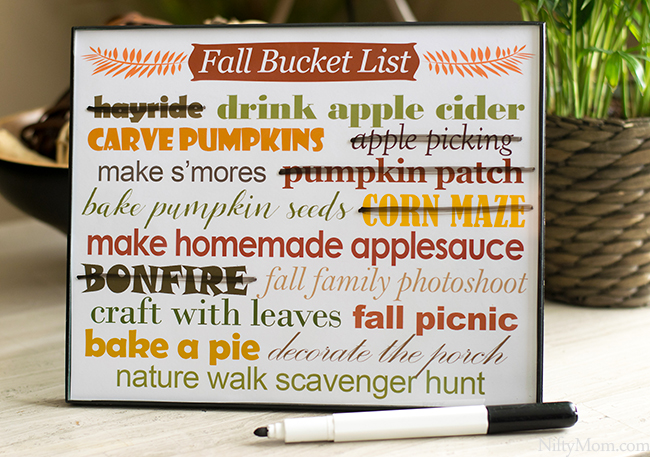 Fall Bucket List
hayride drink apple cider
CARVE PUMPKINS apple picking
make s'mores pumpkin patch
bake pumpkin seeds CORN MAZE
make homemade applesauce
BONFIRE fall family photoshoot
craft with leaves fall picnic
bake a pie decorate the porch
nature walk scavenger hunt
NiftyMom.com